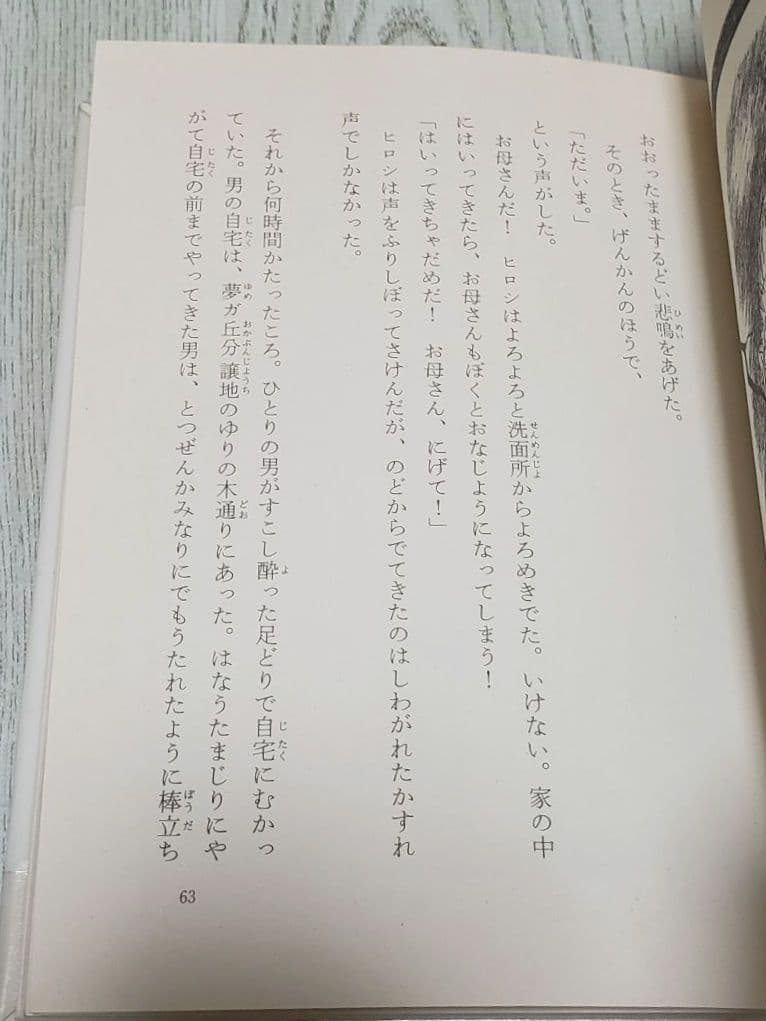 おおったままするどい悲鳴をあげた。
そのとき、げんかんのほうで、
「ただいま。」
という声がした。
お母さんだ！　ヒロシはよろよろと洗面所からよろめきでた。いけない。家の中
にはいってきたら、お母さんもぼくとおなじようになってしまう！
「はいってきちゃだめだ！　お母さん、にげて！」
ヒロシは声をふりしぼってさけんだが、のどからでてきたのはしわがれたかすれ
声でしかなかった。
それから何時間かたったころ。ひとりの男がすこし酔った足どりで自宅にむかっ
ていた。男の自宅は、夢ガ丘分譲地のゆりの木通りにあった。はなうたまじりにや
がて自宅の前までやってきた男は、とつぜんかみなりにでもうたれたように棒立ち
63